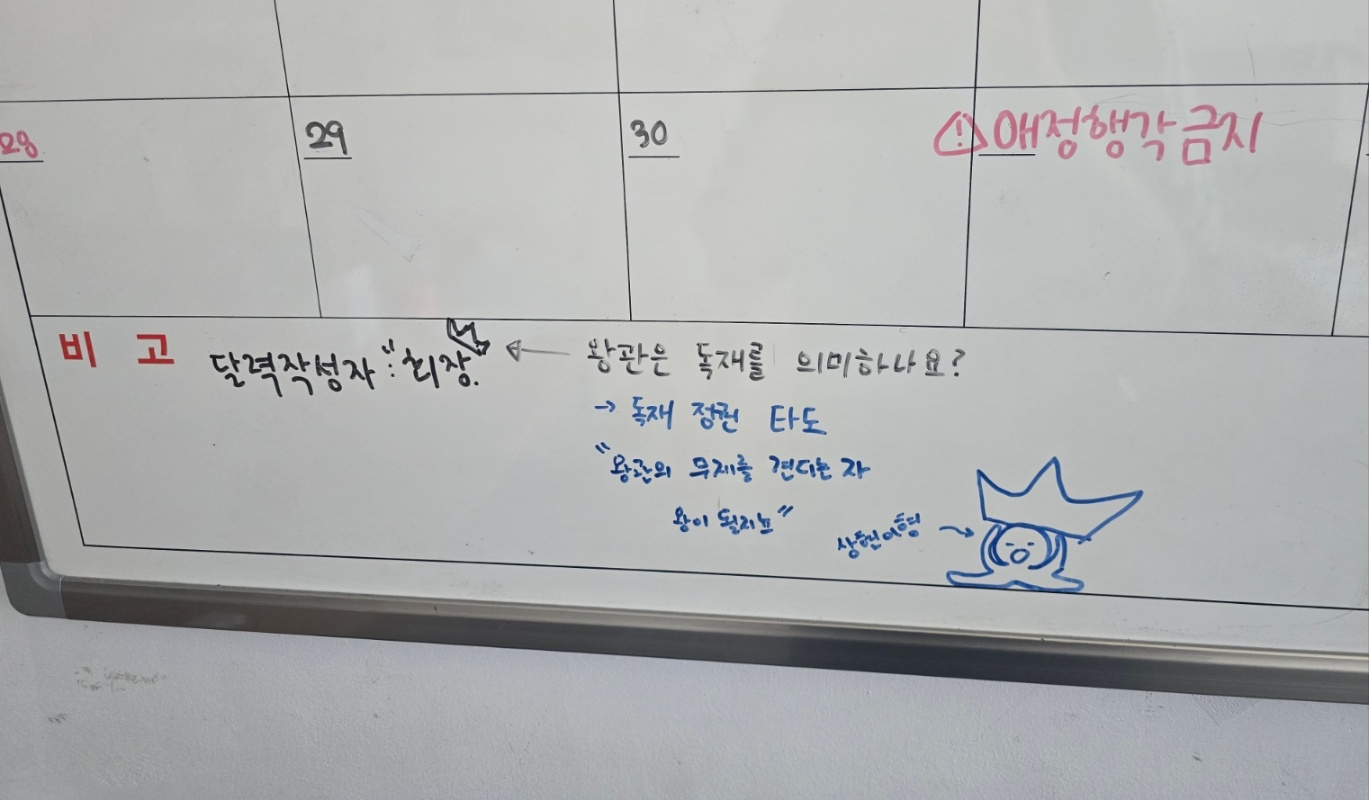 28
29
30
애정행각금지
비 고
달력작성자 : 회장.
왕관은 독재를 의미하나요?
→ 독재 정권 타도
"왕관의 무게를 견디는 자
왕이 될지뇨"
상현이형